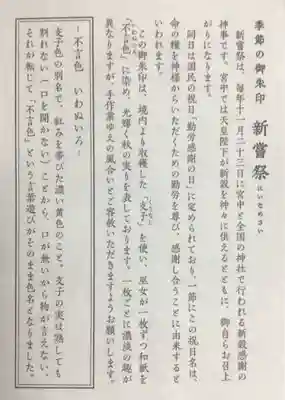 季節の御朱印 新嘗祭
にいなめさい
新嘗祭は、毎年十一月二十三日に宮中と全国の神社で行われる新穀感謝の
神事です。宮中では天皇陛下が新穀を神々に供えるとともに、御自らお召上
がりになります。
同日は国民の祝日「勤労感謝の日」に定められており、一節にこの祝日名は、
命の糧を神様からいただくための勤労を尊び、感謝し合うことに由来すると
いわれます。
この御朱印は、境内より収穫した「支子」を使い、巫女が一枚ずつ和紙を
「不言色」に染め、光輝く秋の実りを表しております。一枚ごとに濃淡の趣が
異なりますが、手作業ゆえの風合いとご容赦いただきますようお願いします。
－不言色 いわぬいろ－
支子色の別名で、紅みを帯びた濃い黄色のこと。支子の実は熟しても
割れない（口を開かない）ことから、口が無いから物が言えない、
それが転じて「不言色」という言葉遊びがそのまま色名となりました。